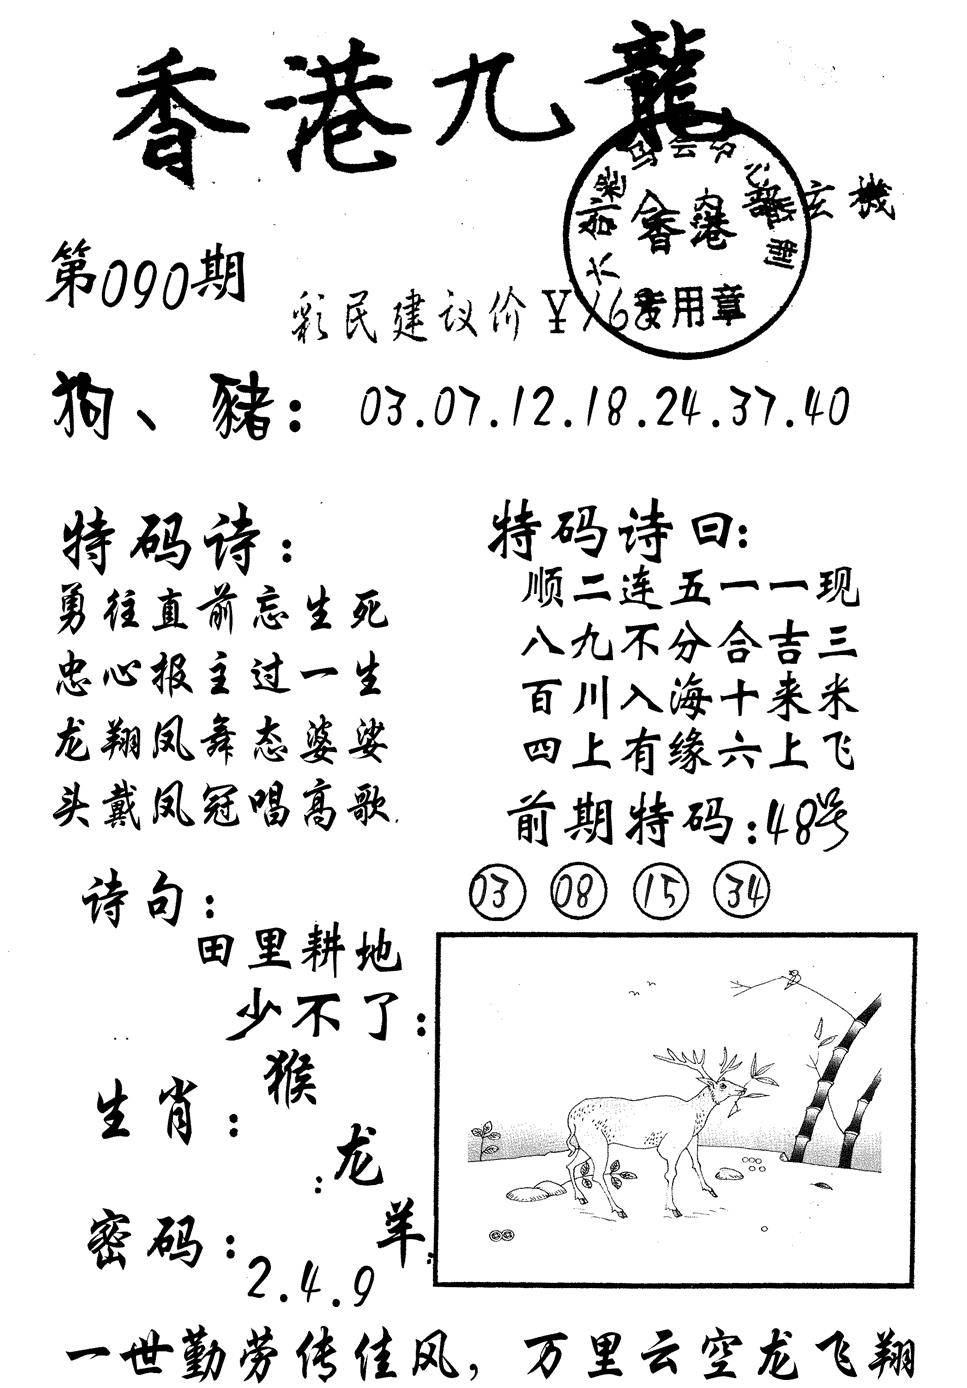 香港九龍
玄機
香港
专用章
第090期
彩民建议价¥168
狗、豬：03.07.12.18.24.37.40
特码诗：
勇往直前忘生死
忠心报主过一生
龙翔凤舞态婆娑
头戴凤冠唱高歌.
特码诗曰:
顺二连五一一现
八九不分合吉三
百川入海十来米
四上有缘六上飞
前期特码:48号
03 08 15 34
诗句：
田里耕地
少不了：
生肖：猴
：龙
羊：
密码：
2.4.9
一世勤劳传佳风，万里云空龙飞翔